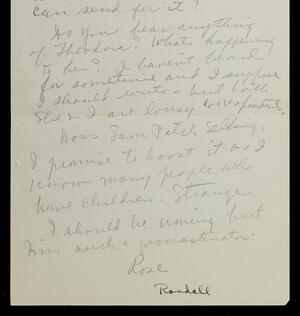 can send for it?
Do you hear anything
of Theodora? Whats happening
to her? I haven't heard
for sometime and I suppose
I should write – but both
She & I are lousy correspondents.
Hows Sam Patch Selling,
I promise to boost it as I
know many people who
have children. Strange.
I should be moving but
I'm such a procrastinator
Rose
Randall